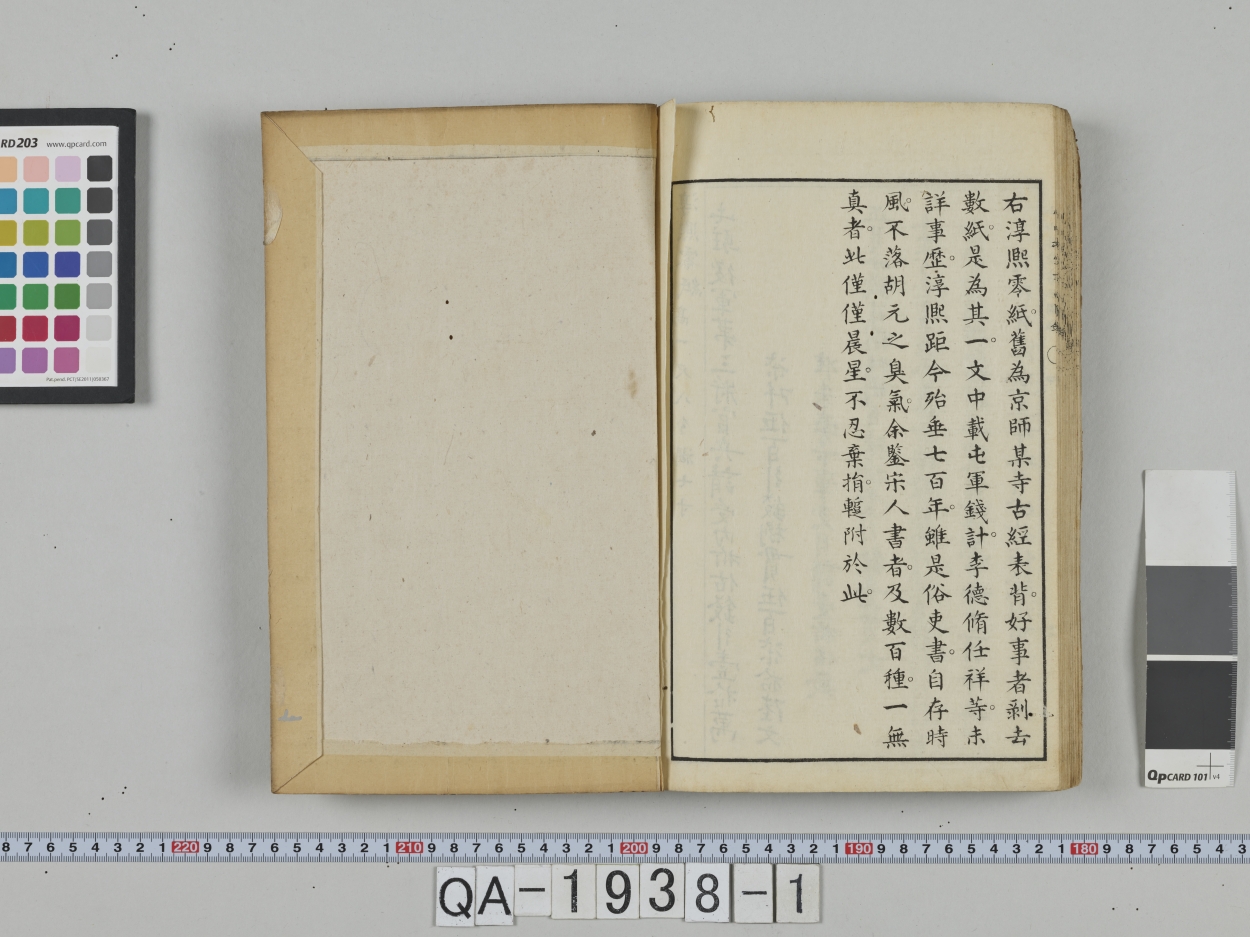 右淳熈零紙。舊為京師某寺古經表背。好事者剥去
數紙。是為其一。文中載屯軍錢計。李德脩任祥等。未
詳事歴。淳熈距今殆垂七百年。雖是俗吏書。自存時
風。不落胡元之臭氣。余鑒宋人書者。及數百種。一無
真者。此僅僅晨星。不忍棄捐。蹔附於此。
RD203 www.qpcard.com
Qpcard 101 v4
8 7 6 5 4 3 2 1 220 9 8 7 6 5 4 3 2 1 210 9 8 7 6 5 4 3 2 1 200 9 8 7 6 5 4 3 2 1 190 9 8 7 6 5 4 3 2 1 180 9 8 7 6 5 4 3
QA-1938-1